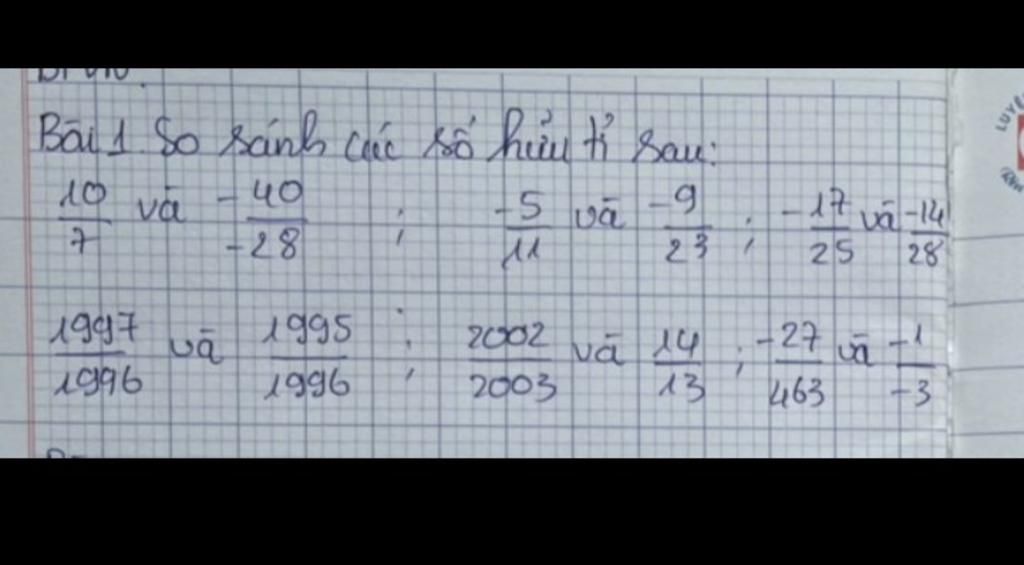 Bài 1. So sánh các số hữu tỉ sau:
10/7 và -40/-28 ; -5/11 và -9/23 ; -17/25 và -14/28
1997/1996 và 1995/1996 ; 2002/2003 và 14/13 ; -27/463 và -1/-3
LUYỆ